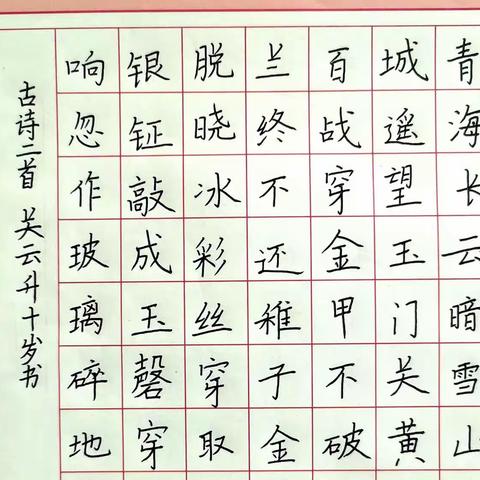 青海长云暗雪山
城遥望玉门关黄
百战穿金甲不破
兰终不还稚子金
脱晓冰彩丝穿取
银钲敲成玉磬穿
响忽作玻璃碎地
古诗二首 关云升十岁书